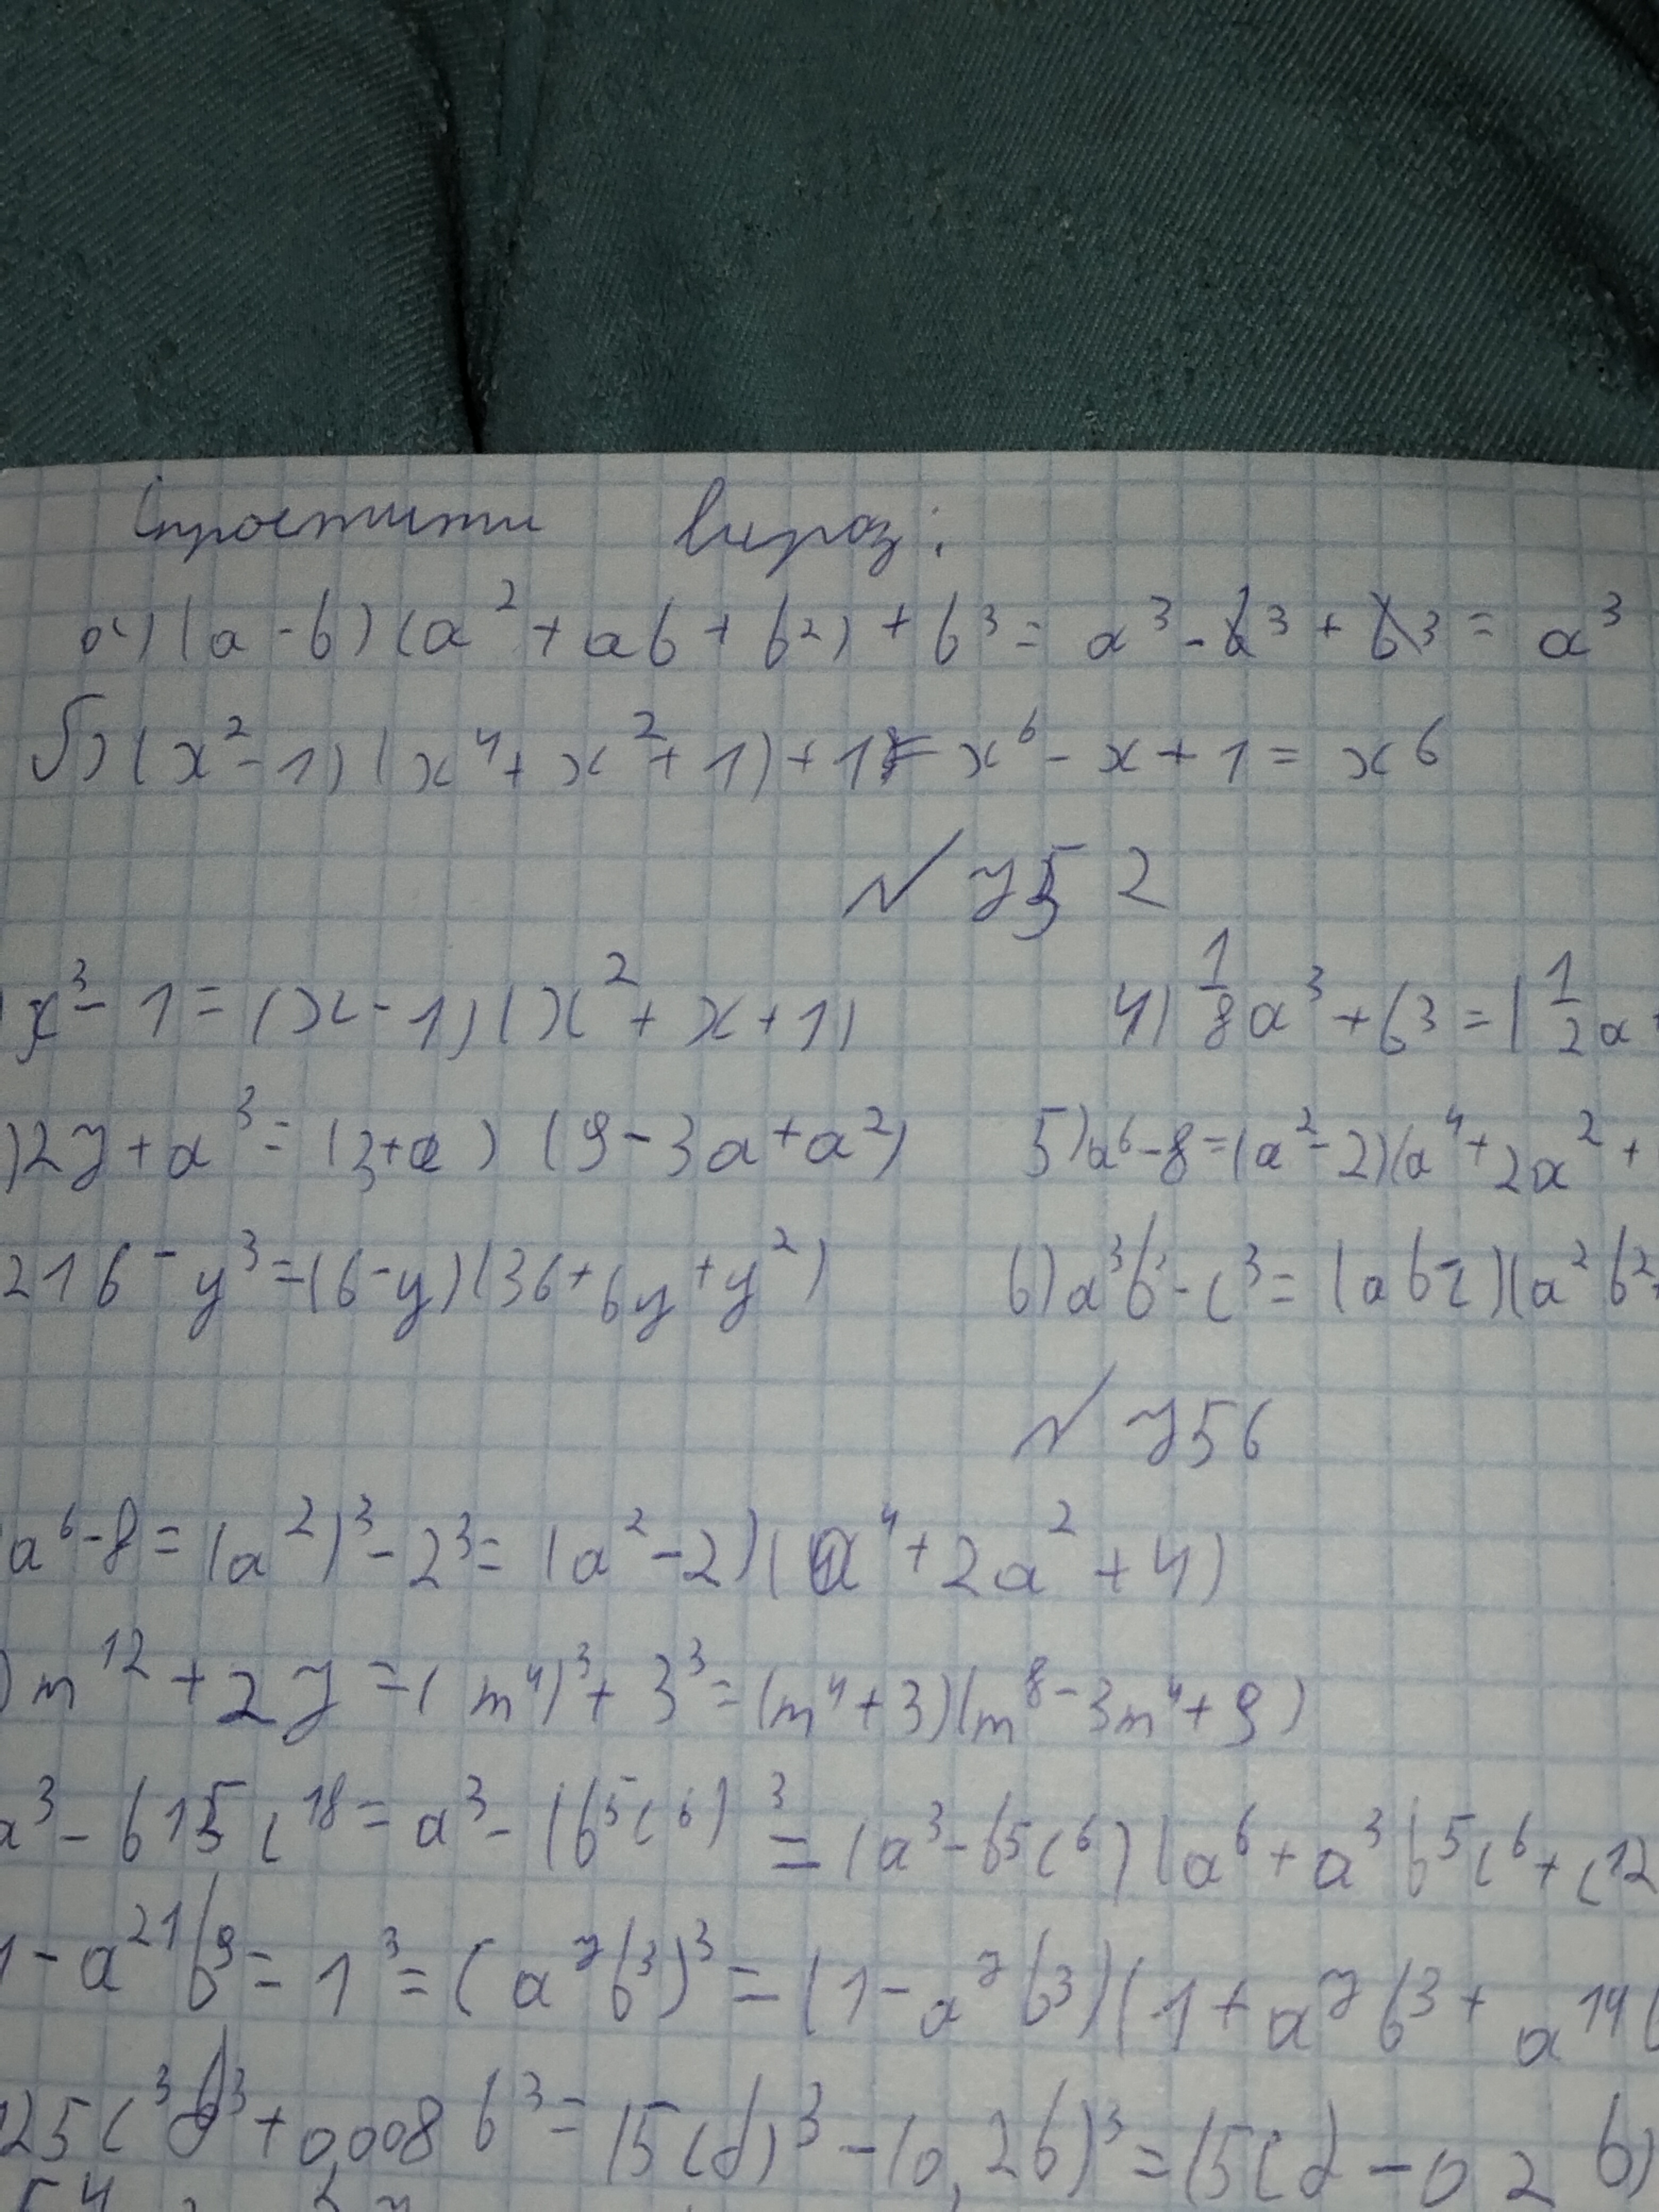 Спростити вираз:
а) (a - b) (a² + ab + b²) + b³ = a³ - b³ + b³ = a³
б) (x² - 1) (x⁴ + x² + 1) + 1 = x⁶ - x + 1 = x⁶
№ 752
x³ - 1 = (x - 1) (x² + x + 1) 4) 1/8 a³ + b³ = ( 1/2 a
) 27 + a³ = (3 + a) (9 - 3a + a²) 5) a⁶ - 8 = (a² - 2)(a⁴ + 2a² +
216 - y³ = (6 - y) (36 + 6y + y²) 6) a³b³ - c³ = (ab-c)(a²b²
№ 756
a⁶ - 8 = (a²)³ - 2³ = (a² - 2) (a⁴ + 2a² + 4)
) m¹² + 27 = (m⁴)³ + 3³ = (m⁴ + 3)(m⁸ - 3m⁴ + 9)
a³ - b15 c¹⁸ = a³ - (b⁵c⁶)³ = (a³ - b⁵c⁶) (a⁶ + a³b⁵c⁶ + c¹²
1 - a²¹b⁹ = 1³ = (a⁷b³)³ = (1 - a⁷b³) (1 + a⁷b³ + a¹⁴
125c³d³ + 0,008b³ = (5cd)³ - (0,2b)³ = (5cd - 0,2b)